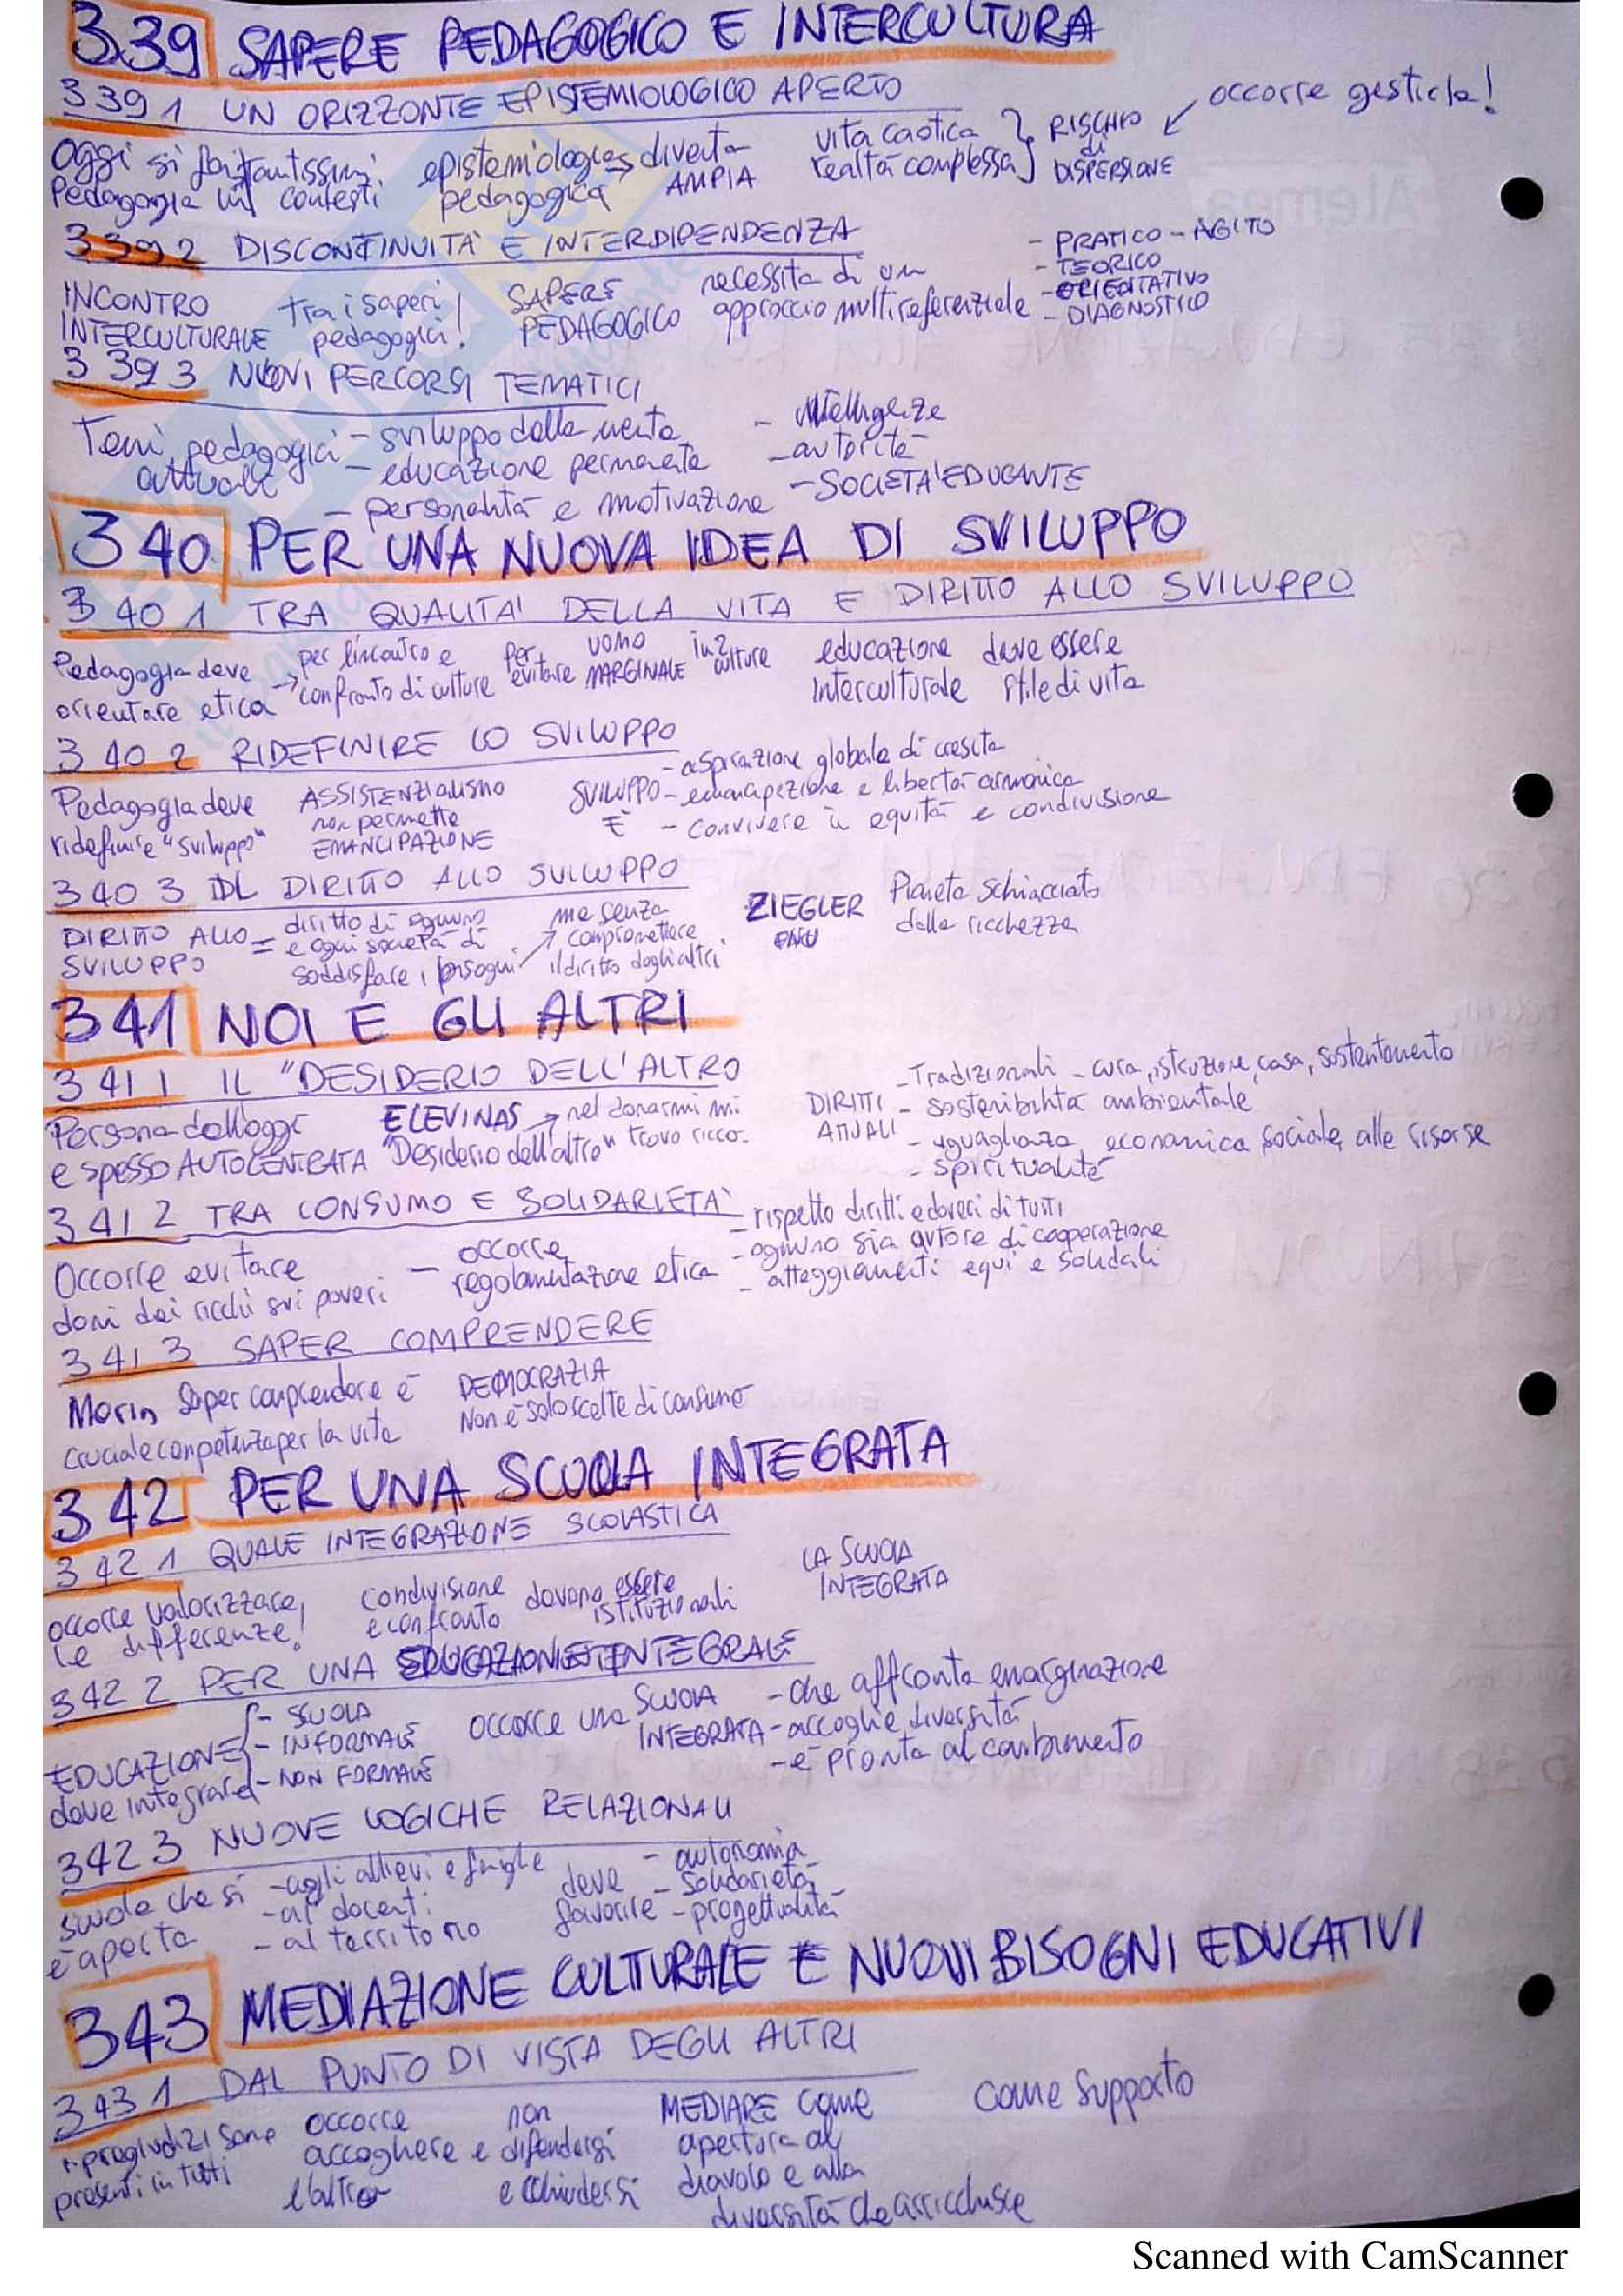 339 SAPERE PEDAGOGICO E INTERCULTURA
3391 UN ORIZZONTE EPISTEMIOLOGICO APERTO
occorre gestirla!
Oggi si fa in tantissimi
Pedagogia contesti
epistemiologies diventa
pedagogica AMPIA
vita caotica
realtà complessa
RISCHIO
di
DISPERSIONE
3392 DISCONTINUITÀ E INTERDIPENDENZA
INCONTRO
INTERCULTURALE
tra i saperi
pedagogici!
SAPERE
PEDAGOGICO
necessita di un
approccio multireferenziale
- PRATICO - AGITO
- TEORICO
- ORIENTATIVO
- DIAGNOSTICO
3393 NUOVI PERCORSI TEMATICI
Temi pedagogici
attuali
- sviluppo della mente
- educazione permanente
- personalità e motivazione
- intelligenze
- autorità
- SOCIETA' EDUCANTE
340 PER UNA NUOVA IDEA DI SVILUPPO
3401 TRA QUALITA' DELLA VITA E DIRITTO ALLO SVILUPPO
Pedagogia deve
orientare etica
per l'incontro e
confronto di culture
per UOMO in 2
evitare MARGINALE culture
educazione deve essere
interculturale stile di vita
3402 RIDEFINIRE LO SVILUPPO
Pedagogia deve
ridefinire "sviluppo"
ASSISTENZIALISMO
non permette
EMANCIPAZIONE
SVILUPPO
È
- aspirazione globale di crescita
- emancipazione e libertà armonica
- convivere in equità e condivisione
3403 IL DIRITTO ALLO SVILUPPO
DIRITTO ALLO =
SVILUPPO
diritto di ognuno
e ogni società di
soddisfare i bisogni
ma senza
compromettere
il diritto degli altri
ZIEGLER
ONU
Pianeta schiacciato
dalla ricchezza
341 NOI E GLI ALTRI
3411 IL "DESIDERIO DELL'ALTRO
Persona dell'oggi
e spesso AUTOCENTRATA
ELEVINAS
"Desiderio dell'altro"
nel donarmi mi
trovo ricco.
DIRITTI
ATTUALI
- Tradizionali - cura, istruzione, casa, sostentamento
- sostenibilità ambientale
- uguaglianza economica, sociale, alle risorse
- spiritualità
3412 TRA CONSUMO E SOLIDARIETA'
Occorre evitare
doni dei ricchi sui poveri
- occorre
regolamentazione etica
- rispetto diritti e doveri di tutti
- ognuno sia autore di cooperazione
- atteggiamenti equi e solidali
3413 SAPER COMPRENDERE
Morin Saper comprendere è
cruciale competenza per la vita
DEMOCRAZIA
Non è solo scelte di consumo
342 PER UNA SCUOLA INTEGRATA
3421 QUALE INTEGRAZIONE SCOLASTICA
occorre valorizzare
le differenze!
condivisione
e confronto
devono essere
istituzionali
LA SCUOLA
INTEGRATA
3422 PER UNA EDUCAZIONE INTEGRALE
EDUCAZIONE
deve integrare
- SCUOLA
- INFORMALE
- NON FORMALE
occorre una SCUOLA
INTEGRATA
- che affronta emarginazione
- accoglie diversità
- è pronta al cambiamento
3423 NUOVE LOGICHE RELAZIONALI
scuola che si
è aperta
- agli allievi e famiglie
- ai docenti
- al territorio
deve
favorire
- autonomia
- solidarietà
- progettualità
343 MEDIAZIONE CULTURALE E NUOVI BISOGNI EDUCATIVI
3431 DAL PUNTO DI VISTA DEGLI ALTRI
i pregiudizi sono
presenti in tutti
occorre
accogliere e
l'altro
non
difendersi
e chiudersi
MEDIARE come
apertura al
diavolo e alla
diversità che arricchisce
come supporto
Scanned with CamScanner